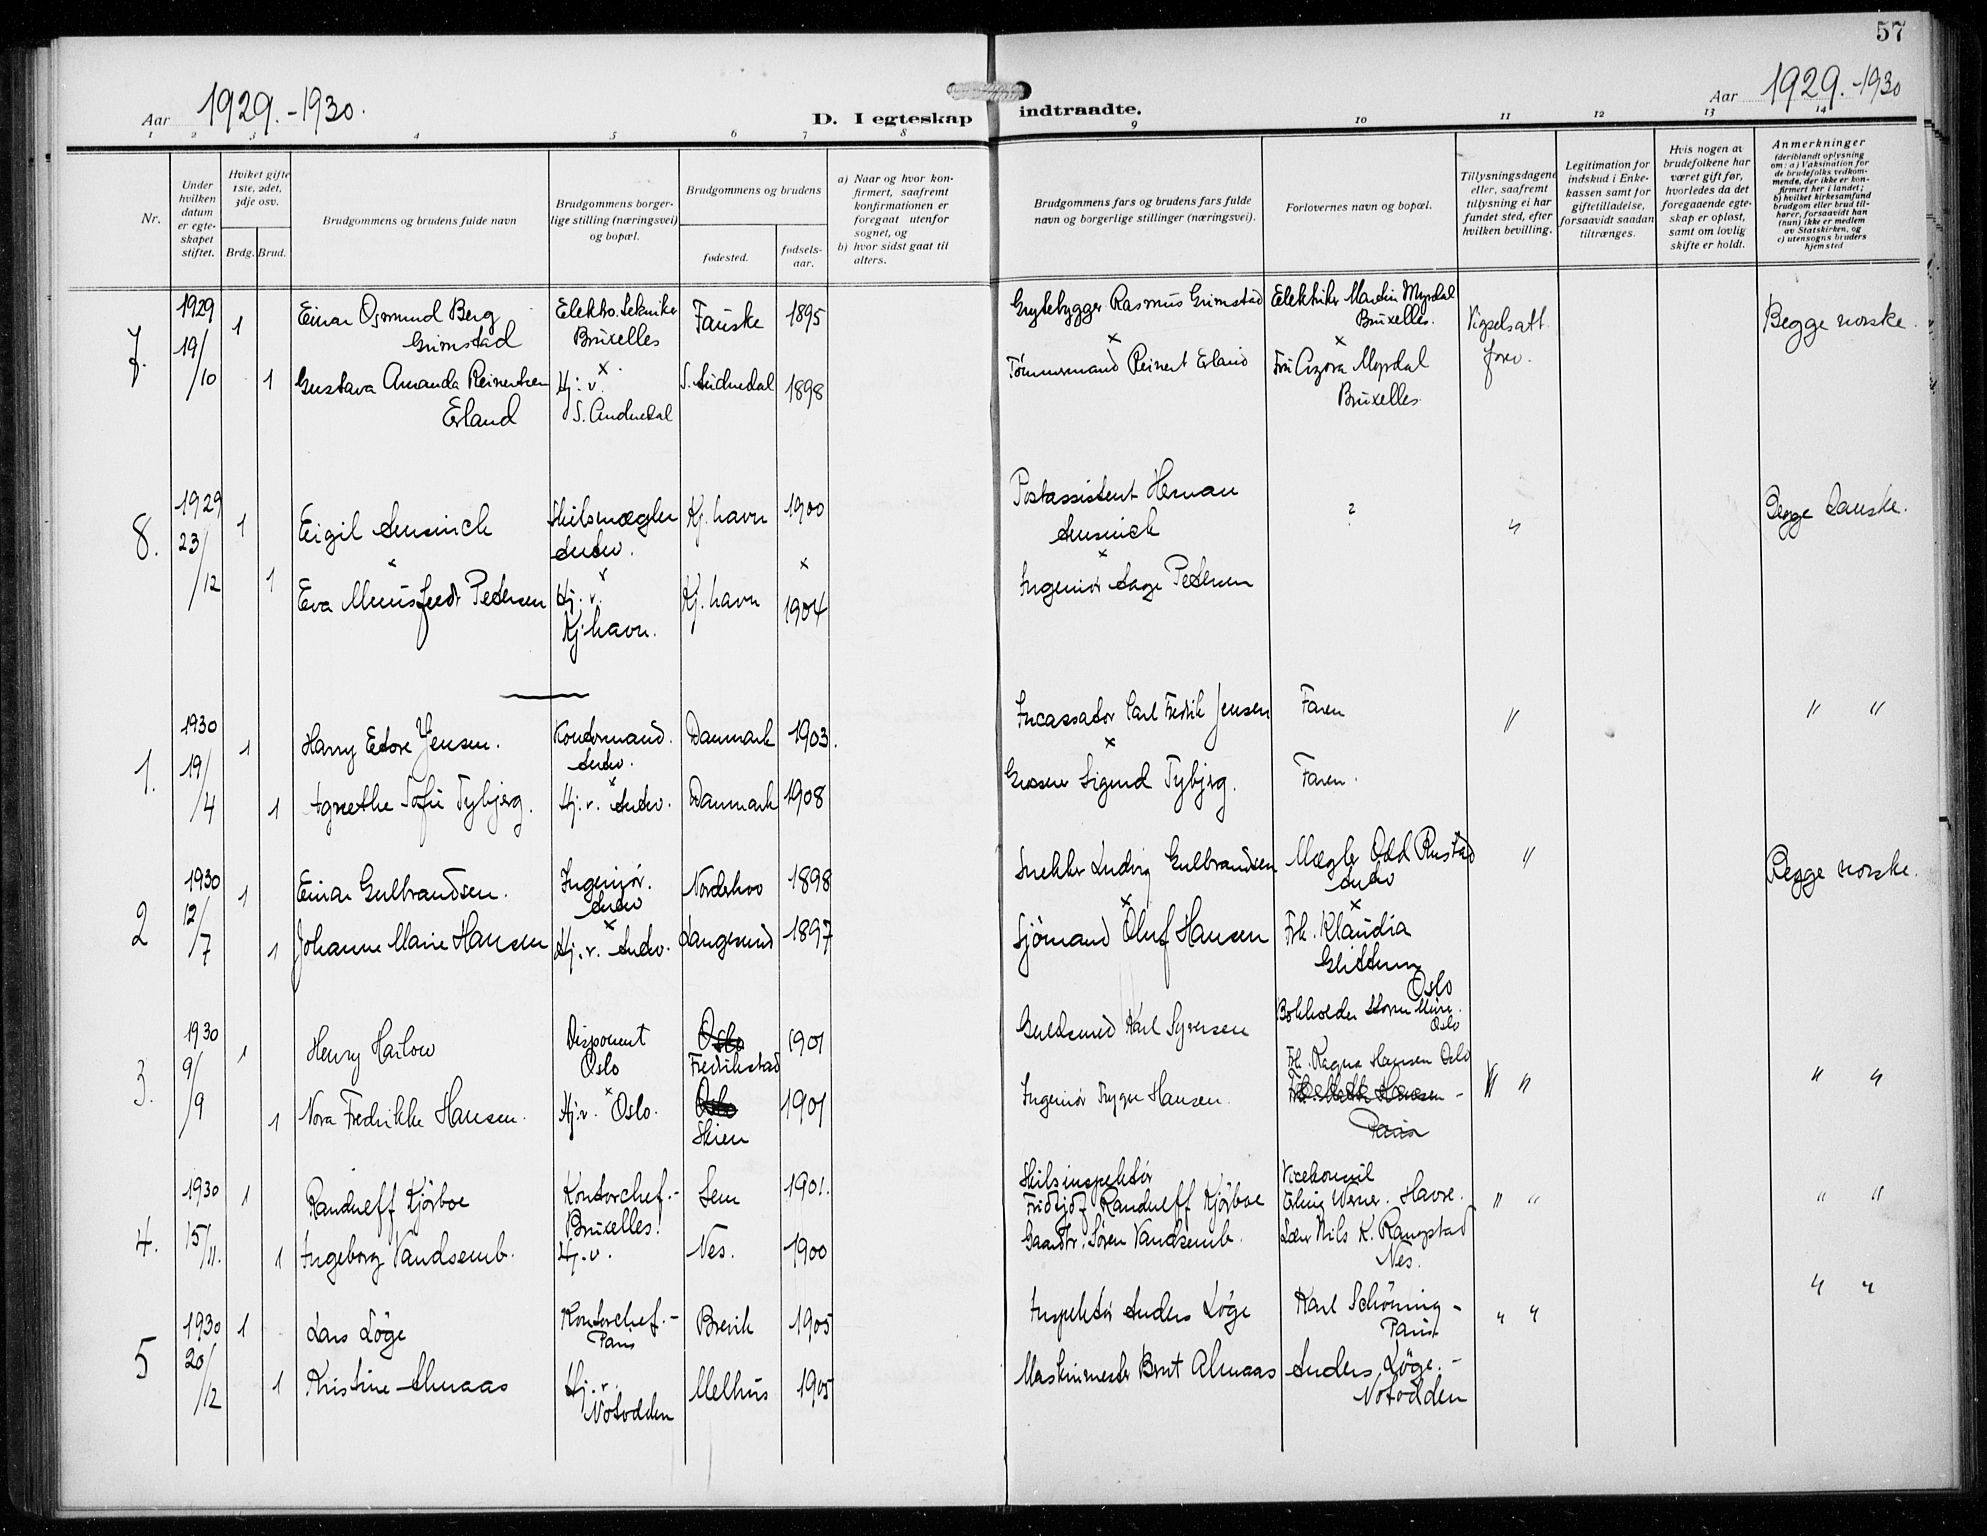 57
Aar 1929.-1930.
D. I egteskap indtraadte.
Aar 1929.-1930
1 2 3 4 5 6 7 8 9 10 11 12 13 14
Nr.
Under hvilken datum er egteskapet stiftet.
Hviket gifte 1ste, 2det, 3dje osv.
Brdg. Brud.
Brudgommens og brudens fulde navn
Brudgommens borgerlige stilling (næringsvei) og bopæl.
Brudgommens og brudens
fødested.
fødselsaar.
a) Naar og hvor konfirmert, saafremt konfirmationen er foregaat utenfor sognet, og
b) hvor sidst gaat til alters.
Brudgommens fars og brudens fars fulde navn og borgerlige stillinger (næringsvei).
Forlovernes navn og bopæl.
Tillysningsdagene eller, saafremt tillysning ei har fundet sted, efter hvilken bevilling.
Legitimation for indskud i Enkekassen samt for giftetilladelse, forsaavidt saadan tiltrænges.
Hvis nogen av brudefolkene har været gift før, hvorledes da det foregaaende egteskap er opløst, samt om lovlig skifte er holdt.
Anmerkninger
(deriblandt oplysning om: a) Vaksination for de brudefolks vedkommende, der ikke er konfirmert her i landet; b) hvilket kirkesamfund brudgom eller brud tilhører, forsaavidt han (hun) ikke er medlem av Statskirken, og c) utensogns bruders hjemsted
7. 1929 19/10
1 Einar Osmund Berg Grimstad
Elektro.tekniker Bruxelles
Fauske 1895
Rasmus Grimstad
Elektriker Martin Myrdal Bruxelles.
Vigselsatt. forev.
Begge norske.
1 Gustava Amanda Reinertsen Erland
Hj. v. S. Audnedal
S. Audnedal 1898
Tømmermand Reinert Erland
Fru Myrdal Bruxelles
8. 1929 23/12
1 Eigil
Skibsmægler Antw.
Kj. havn 1900
Postassistent Herman
?
"
Begge danske.
1 Eva Petersen
Hj. v. Kj.havn.
Kj. havn 1904
Ingeniør Aage Petersen
1. 1930 19/4
1 Harry Edore Jensen.
Kontormand. Antw.
Danmark 1903.
Incassator Carl Fredrik Jensen
Faren
"
" "
1 Agnethe Sofie Tybjerg.
Hj. v. Antw.
Danmark 1908
Sigurd Tybjerg.
Faren.
2 1930 12/7
1 Einar Gulbrandsen.
Ingeniør. Antw
Norderhov 1898
Snekker Ludvig Gulbrandsen
Mægler Odd Rustad Antw
"
Begge norske.
1 Johanne Marie Hansen
Hj. v. Antw.
Langesund 1897
Sjömand Oluf Hansen
Frk. Klaudia Glittum Oslo
3. 1930 9/9
1 Henry Harlow
Disponent Oslo
Oslo Fredrikstad 1901
Guldsmed Karl Syversen
Bokholder Oslo
" "
" "
1 Nora Fredrikke Hansen.
Hj.v. Oslo.
Oslo Skien 1901
Ingeniør Trygve Hansen.
Frk. Ragna Hansen Oslo
Paris
4. 1930 15/11.
1 Randueff Kjörboe
Kontorchef.- Bruxelles.
Sem 1901.
Skibsinspektör Fridtjof Randueff Kjörboe
Vicekonsul Erling Werner. Havre.
" "
" "
1 Ingeborg Vandsemb.
Hj. v.
Nes. 1900
Gaardbr. Søren Vandsemb.
Nils K. Rangstad Nes.
5 1930 20/12
1 Lars Löge
Kontorchef.- Paris
Brevik 1905
Inspektør Anders Löge
Karl Schöning - Paris.
" "
" "
1 Kristine Almaas
Hj. v. Notodden
Melhus 1905
Maskinmester Brut Almaas
Anders Löge.- Notodden